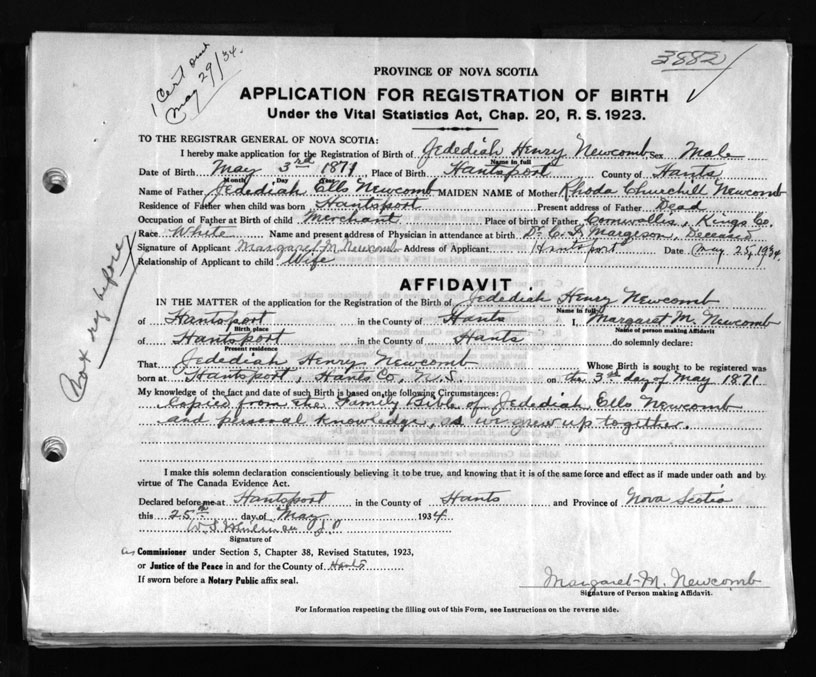 1 Cert
May 29/34.
3882
PROVINCE OF NOVA SCOTIA
APPLICATION FOR REGISTRATION OF BIRTH
Under the Vital Statistics Act, Chap. 20, R. S. 1923.
TO THE REGISTRAR GENERAL OF NOVA SCOTIA:
I hereby make application for the Registration of Birth of Jedediah Henry Newcomb Sex Male
Name in full
Date of Birth May 3rd 1871 Place of Birth Hantsport County of Hants
Month Day Year
Name of Father Jedediah Ells Newcomb MAIDEN NAME of Mother Rhoda Churchill Newcomb
Residence of Father when child was born Hantsport Present address of Father Dead
Occupation of Father at Birth of child Merchant Place of birth of Father Cornwallis, Kings Co.
Race White Name and present address of Physician in attendance at birth Dr. C. I. Margeson, Deceased
Signature of Applicant Margaret M. Newcomb Address of Applicant Hantsport Date May 25, 1934.
Relationship of Applicant to child Wife
Not reg before
AFFIDAVIT
IN THE MATTER of the application for the Registration of the Birth of Jedediah Henry Newcomb
Name in full
of Hantsport in the County of Hants I, Margaret M. Newcomb
Birth place Name of person making Affidavit
of Hantsport in the County of Hants do solemnly declare:
Present residence
That Jedediah Henry Newcomb Whose Birth is sought to be registered was
born at Hantsport, Hants Co, N.S. on the 3rd day of May 1871
My knowledge of the fact and date of such Birth is based on the following Circumstances:
Copied from the Family Bible of Jedediah Ells Newcomb
and personal knowledge, as we grew up together.
I make this solemn declaration conscientiously believing it to be true, and knowing that it is of the same force and effect as if made under oath and by
virtue of The Canada Evidence Act.
Declared before me at Hantsport in the County of Hants and Province of Nova Scotia
this 25th day of May 1934
W. S. J.P
Signature of
as Commissioner under Section 5, Chapter 38, Revised Statutes, 1923,
or Justice of the Peace in and for the County of Hants
If sworn before a Notary Public affix seal.
Margaret M. Newcomb
Signature of Person making Affidavit.
For Information respecting the filling out of this Form, see Instructions on the reverse side.